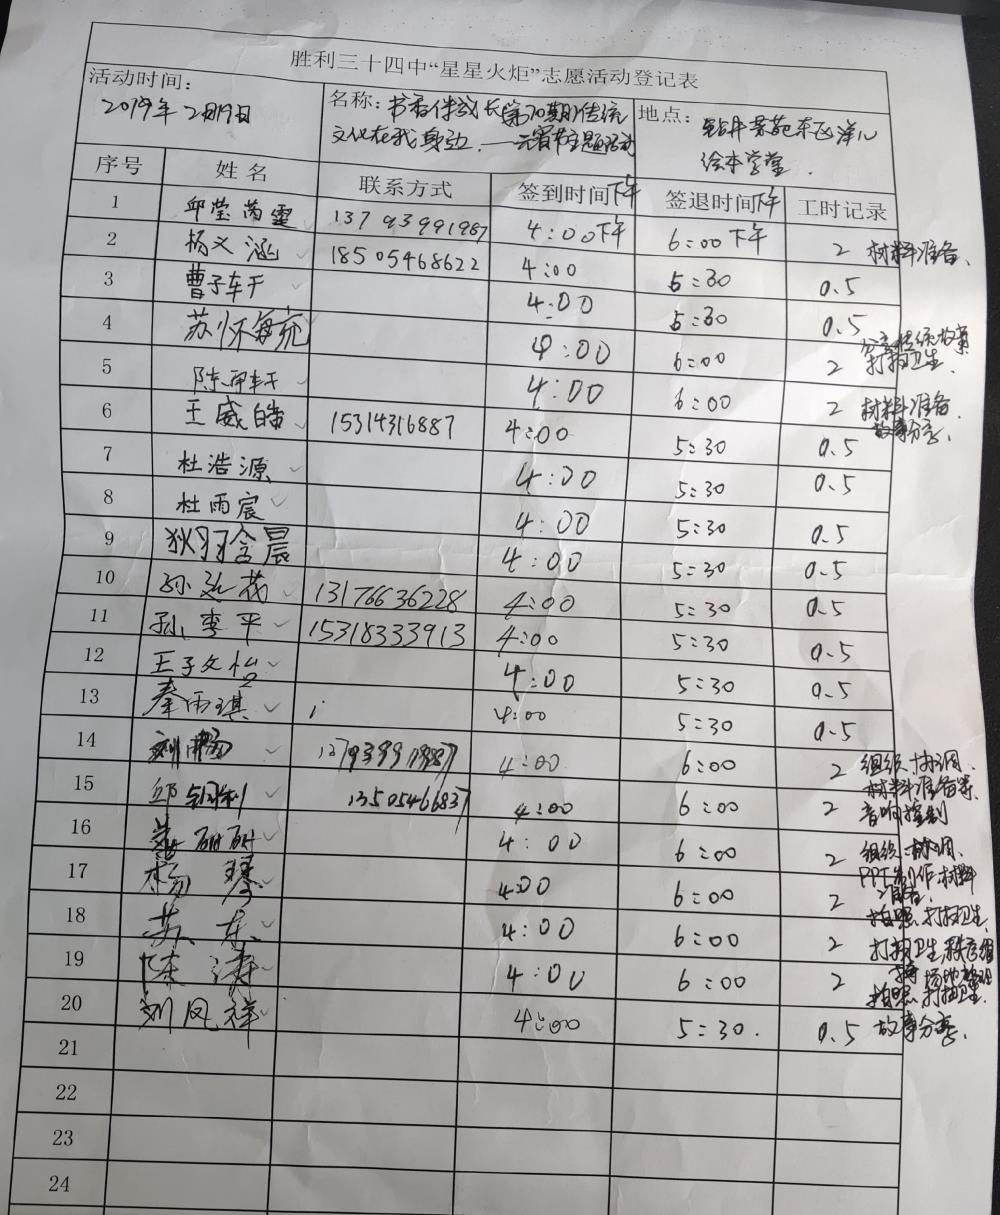 胜利三十四中“星星火炬”志愿活动登记表
活动时间： 名称：书香伴成长第70期传统 地点：
2019年2月19日 文化在我身边——元宵节主题活动 绘本学堂
序号 姓名 联系方式 签到时间下午 签退时间下午 工时记录
1 邱莹芮雯 13793991987 4:00下午 6:00下午 2 材料准备、
2 杨义涵 18505468622 4:00 5:30 0.5
3 曹子轩 4:00 5:30 0.5
4 苏怀 4:00 6:00 2 分享传统故事 打扫卫生.
5 陈 轩 4:00 6:00 2 材料准备. 故事分享.
6 王威皓 15314316887 4:00 5:30 0.5
7 杜浩源 4:00 5:30 0.5
8 杜雨宸 4:00 5:30 0.5
9 狄羽含晨 4:00 5:30 0.5
10 孙 茂 13176636228 4:00 5:30 0.5
11 孙李平 15318333913 4:00 5:30 0.5
12 王子文怡 4:00 5:30 0.5
13 秦雨琪 4:00 5:30 0.5
14 刘 4:00 6:00 2 组织协调、材料准备等
15 邱 利 13505466837 4:00 6:00 2 音响控制
16 研研 4:00 6:00 2 组织协调、PPT制作材料准备.
17 杨琴 4:00 6:00 2 拍照.打扫卫生.
18 苏东 4:00 6:00 2 打扫卫生,
19 陈涛 4:00 6:00 2 拍照.打扫卫生.
20 刘凤祥 4:00 5:30. 0.5 故事分享.
21
22
23
24